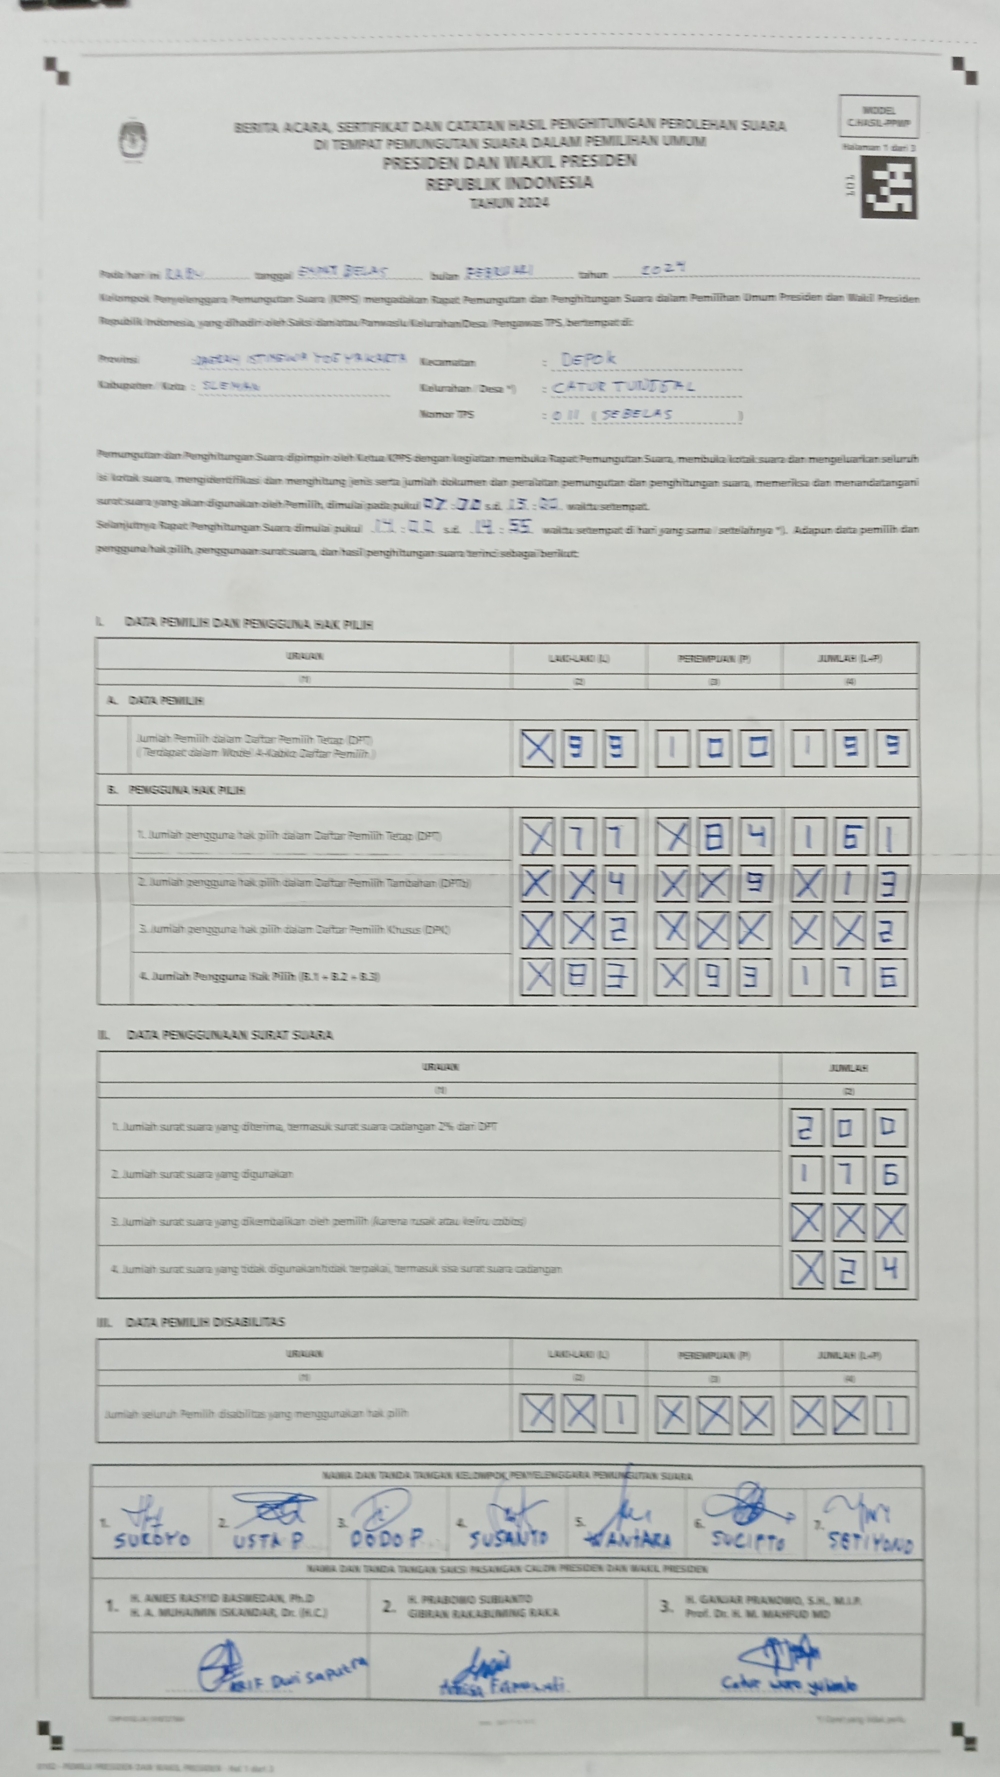 MODEL
C.HASIL-PPWP
Halaman 1 dari 3
BERITA ACARA, SERTIFIKAT DAN CATATAN HASIL PENGHITUNGAN PEROLEHAN SUARA
DI TEMPAT PEMUNGUTAN SUARA DALAM PEMILIHAN UMUM
PRESIDEN DAN WAKIL PRESIDEN
REPUBLIK INDONESIA
TAHUN 2024
101
Pada hari ini RABU tanggal EMPAT BELAS bulan FEBRUARI tahun 2024
Kelompok Penyelenggara Pemungutan Suara (KPPS) mengadakan Rapat Pemungutan dan Penghitungan Suara dalam Pemilihan Umum Presiden dan Wakil Presiden
Republik Indonesia, yang dihadiri oleh Saksi dan/atau Panwaslu Kelurahan/Desa/Pengawas TPS, bertempat di:
Provinsi : DAERAH ISTIMEWA YOGYAKARTA Kecamatan : DEPOK
Kabupaten/Kota : SLEMAN Kelurahan/Desa *) : CATUR TUNGGAL
Nomor TPS : 011 (SEBELAS)
Pemungutan dan Penghitungan Suara dipimpin oleh Ketua KPPS dengan kegiatan membuka Rapat Pemungutan Suara, membuka kotak suara dan mengeluarkan seluruh
isi kotak suara, mengidentifikasi dan menghitung jenis serta jumlah dokumen dan peralatan pemungutan dan penghitungan suara, memeriksa dan menandatangani
surat suara yang akan digunakan oleh Pemilih, dimulai pada pukul s.d. 13 : 00 waktu setempat.
Selanjutnya Rapat Penghitungan Suara dimulai pukul 14 : 00 s.d. : 55 waktu setempat di hari yang sama/setelahnya *). Adapun data pemilih dan
pengguna hak pilih, penggunaan surat suara, dan hasil penghitungan suara terinci sebagai berikut:
I. DATA PEMILIH DAN PENGGUNA HAK PILIH
URAIAN LAKI-LAKI (L) PEREMPUAN (P) JUMLAH (L+P)
(1) (2) (3) (4)
A. DATA PEMILIH
Jumlah Pemilih dalam Daftar Pemilih Tetap (DPT) X 9 9 1 0 0 1 9 9
(Terdapat dalam Model A-Kabko Daftar Pemilih)
B. PENGGUNA HAK PILIH
1. Jumlah pengguna hak pilih dalam Daftar Pemilih Tetap (DPT) X 7 7 X 8 4 1 6 1
2. Jumlah pengguna hak pilih dalam Daftar Pemilih Tambahan (DPTb) X X 4 X X 9 X 1 3
3. Jumlah pengguna hak pilih dalam Daftar Pemilih Khusus (DPK) X X 2 X X X X X 2
4. Jumlah Pengguna Hak Pilih (B.1 + B.2 + B.3) X 8 3 X 9 3 1 7 6
II. DATA PENGGUNAAN SURAT SUARA
URAIAN JUMLAH
(1) (2)
1. Jumlah surat suara yang diterima, termasuk surat suara cadangan 2% dari DPT 2 0 0
2. Jumlah surat suara yang digunakan 1 7 6
3. Jumlah surat suara yang dikembalikan oleh pemilih (karena rusak atau keliru coblos) X X X
4. Jumlah surat suara yang tidak digunakan/tidak terpakai, termasuk sisa surat suara cadangan X 2 4
III. DATA PEMILIH DISABILITAS
URAIAN LAKI-LAKI (L) PEREMPUAN (P) JUMLAH (L+P)
(1) (2) (3) (4)
Jumlah seluruh Pemilih disabilitas yang menggunakan hak pilih X X 1 X X X X X 1
NAMA DAN TANDA TANGAN KELOMPOK PENYELENGGARA PEMUNGUTAN SUARA
1. SUROYO 2. USTA P 3. DODO P 4. SUSANTO 5. WANTARA 6. SUCIPTO 7. SETIYONO
NAMA DAN TANDA TANGAN SAKSI PASANGAN CALON PRESIDEN DAN WAKIL PRESIDEN
1. H. ANIES RASYID BASWEDAN, Ph.D 2. H. PRABOWO SUBIANTO 3. H. GANJAR PRANOWO, S.H., M.I.P.
H. A. MUHAIMIN ISKANDAR, Dr. (H.C.) GIBRAN RAKABUMING RAKA Prof. Dr. H. M. MAHFUD MD
ARIF Dwi Saputra
*) Coret yang tidak perlu